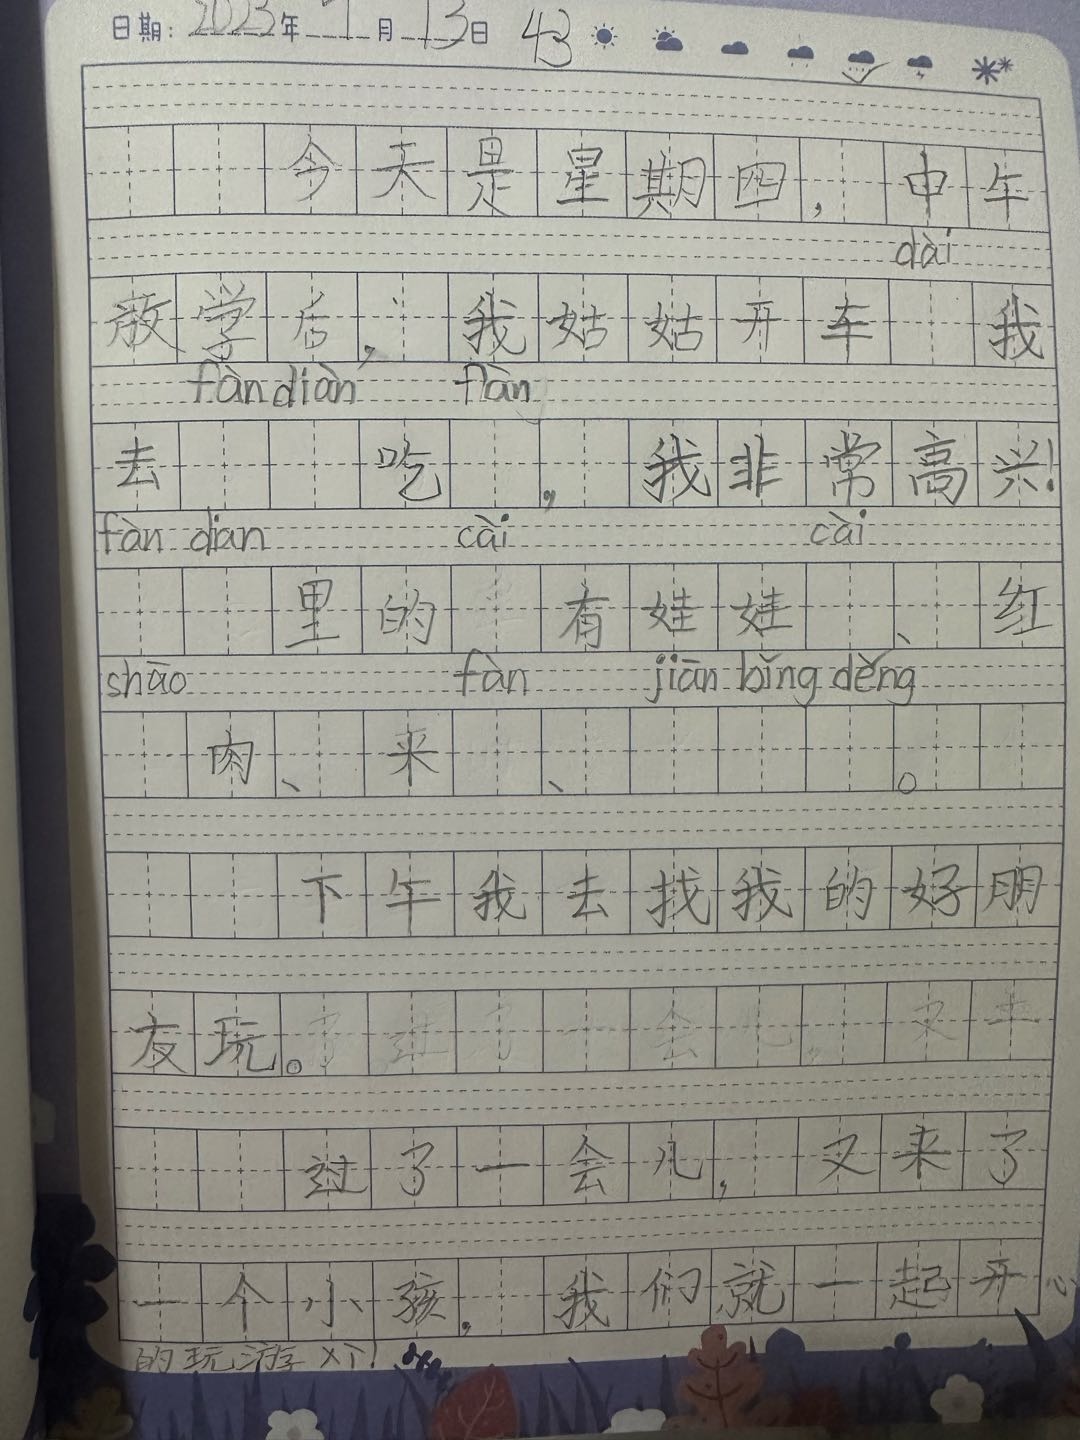 日期：2023年7月13日 43
今天是星期四，中午
dài
放学后，我姑姑开车 我
fàn diàn fàn
去 吃 ，我非常高兴！
fàn dian cài cài
里的 有娃娃 、红
shāo fàn jiān bǐng děng
肉、来 、 。
下午我去找我的好朋
友玩。
过了一会儿，又来了
一个小孩，我们就一起开心
的玩游戏！